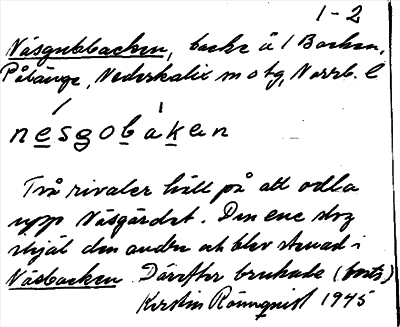 1-2
Näsgubbbacken, backe å 1 Backen,
Pålänge, Nederkalix m o tg, Norrb. l
nesgobakan
Två rivaler höll på att odla
upp Näsgärdet. Den ene slog
ihjäl den andre och blev stenad i
Näsbacken. Därefter brukade (forts)
Kerstin Rönnqvist 1945